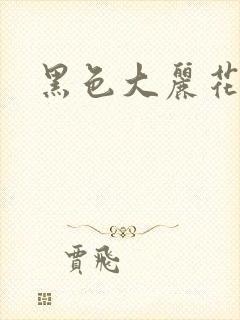 黑色大麗花
賈飛